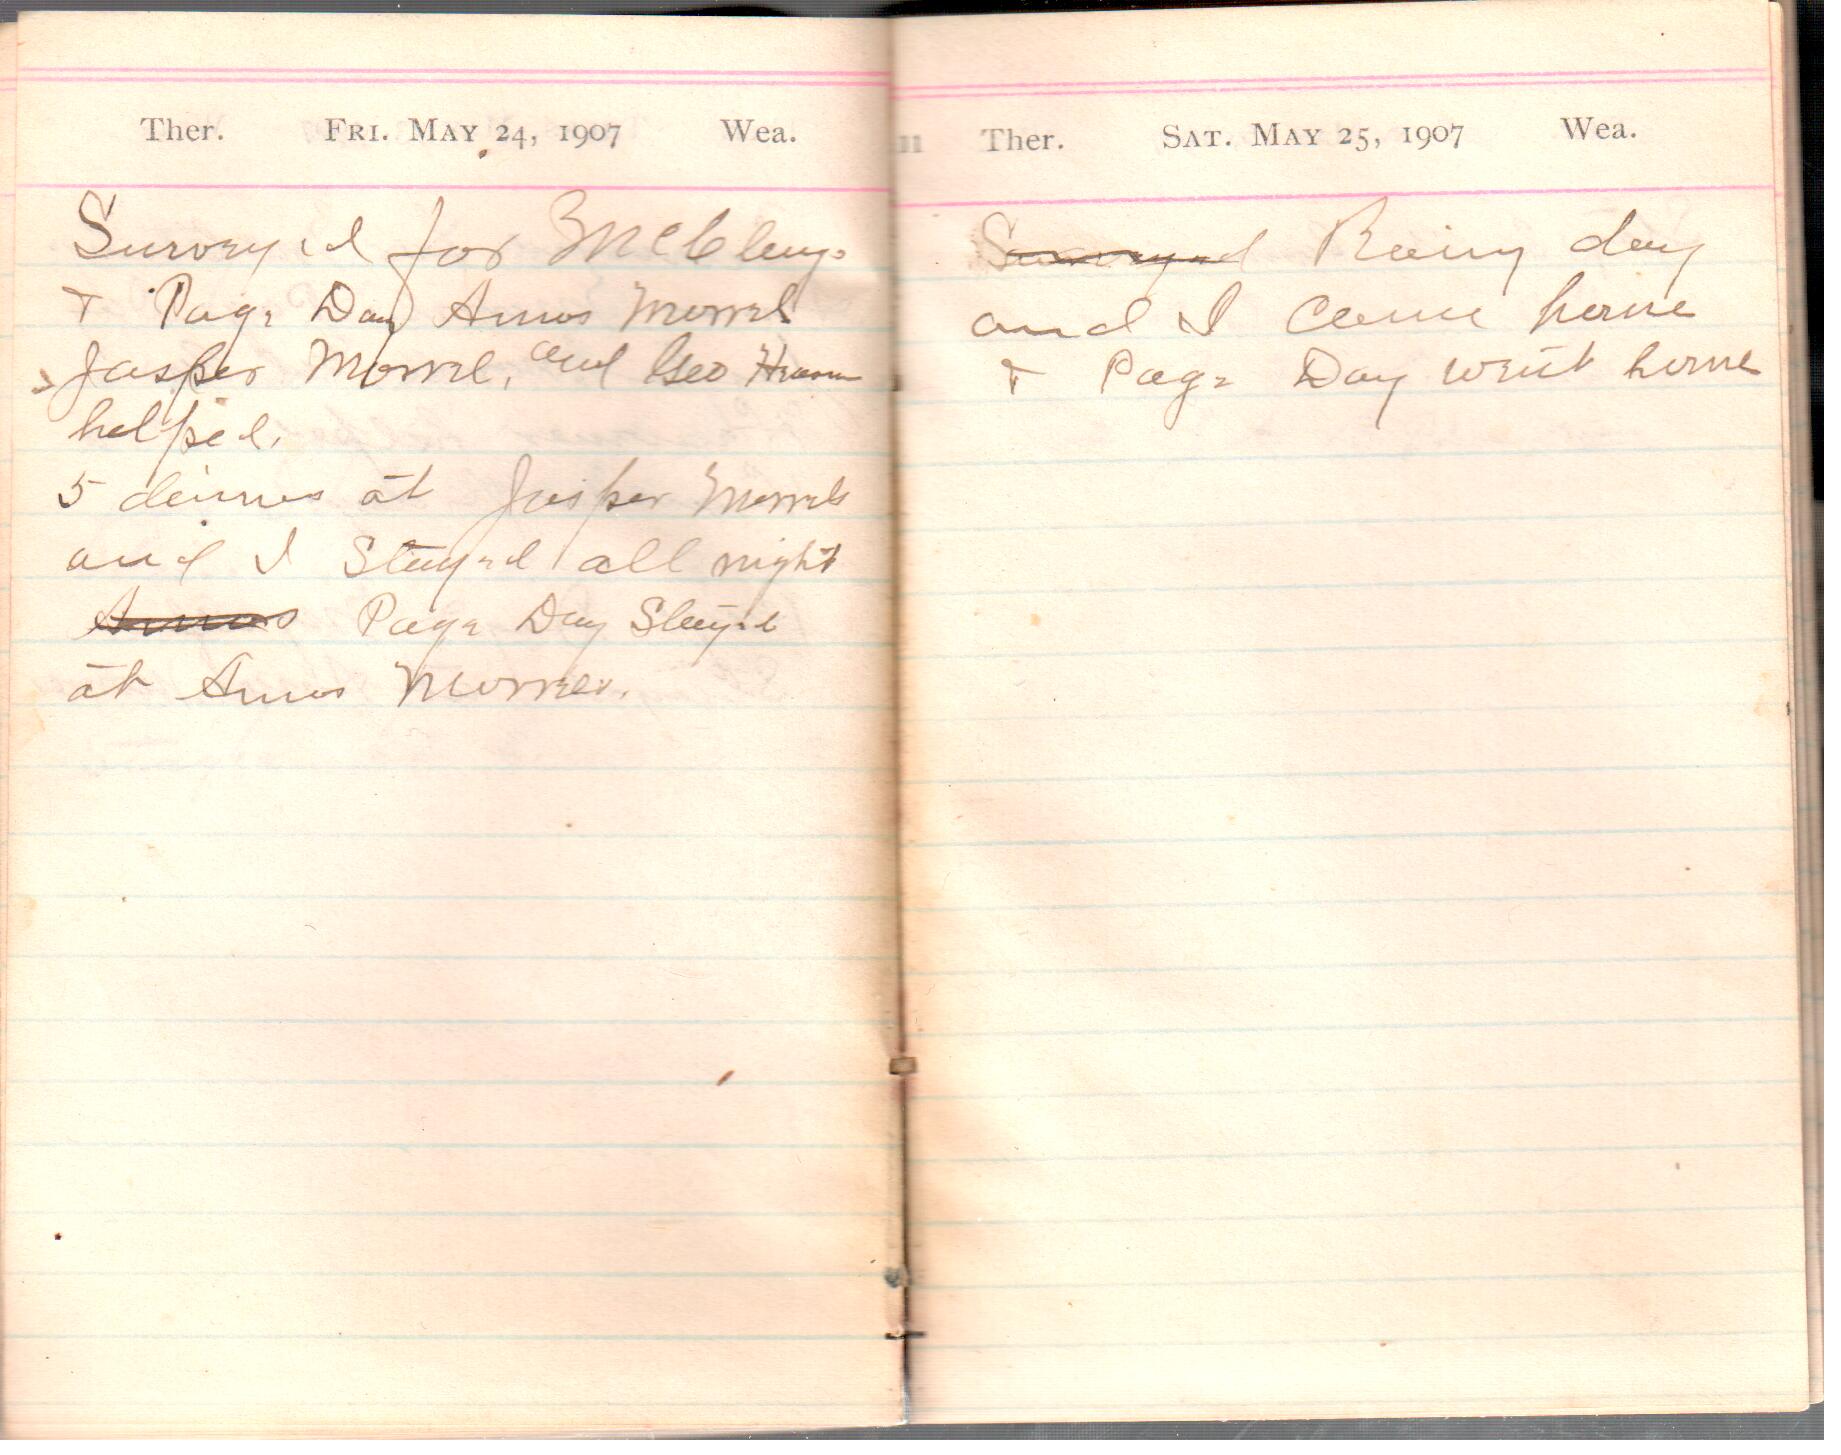 Ther. FRI. MAY 24, 1907 Wea.
Surveyed for
& Page Day Amos Morrel
Jasper Morrel, and Geo
helped.
5 dinners at Jasper Morrels
and I Stayed all night
Amos Page Day Stayed
at Amos Morrels.
Ther. SAT. MAY 25, 1907 Wea.
Surveyed Rainy day
and I Came home
& Page Day went home